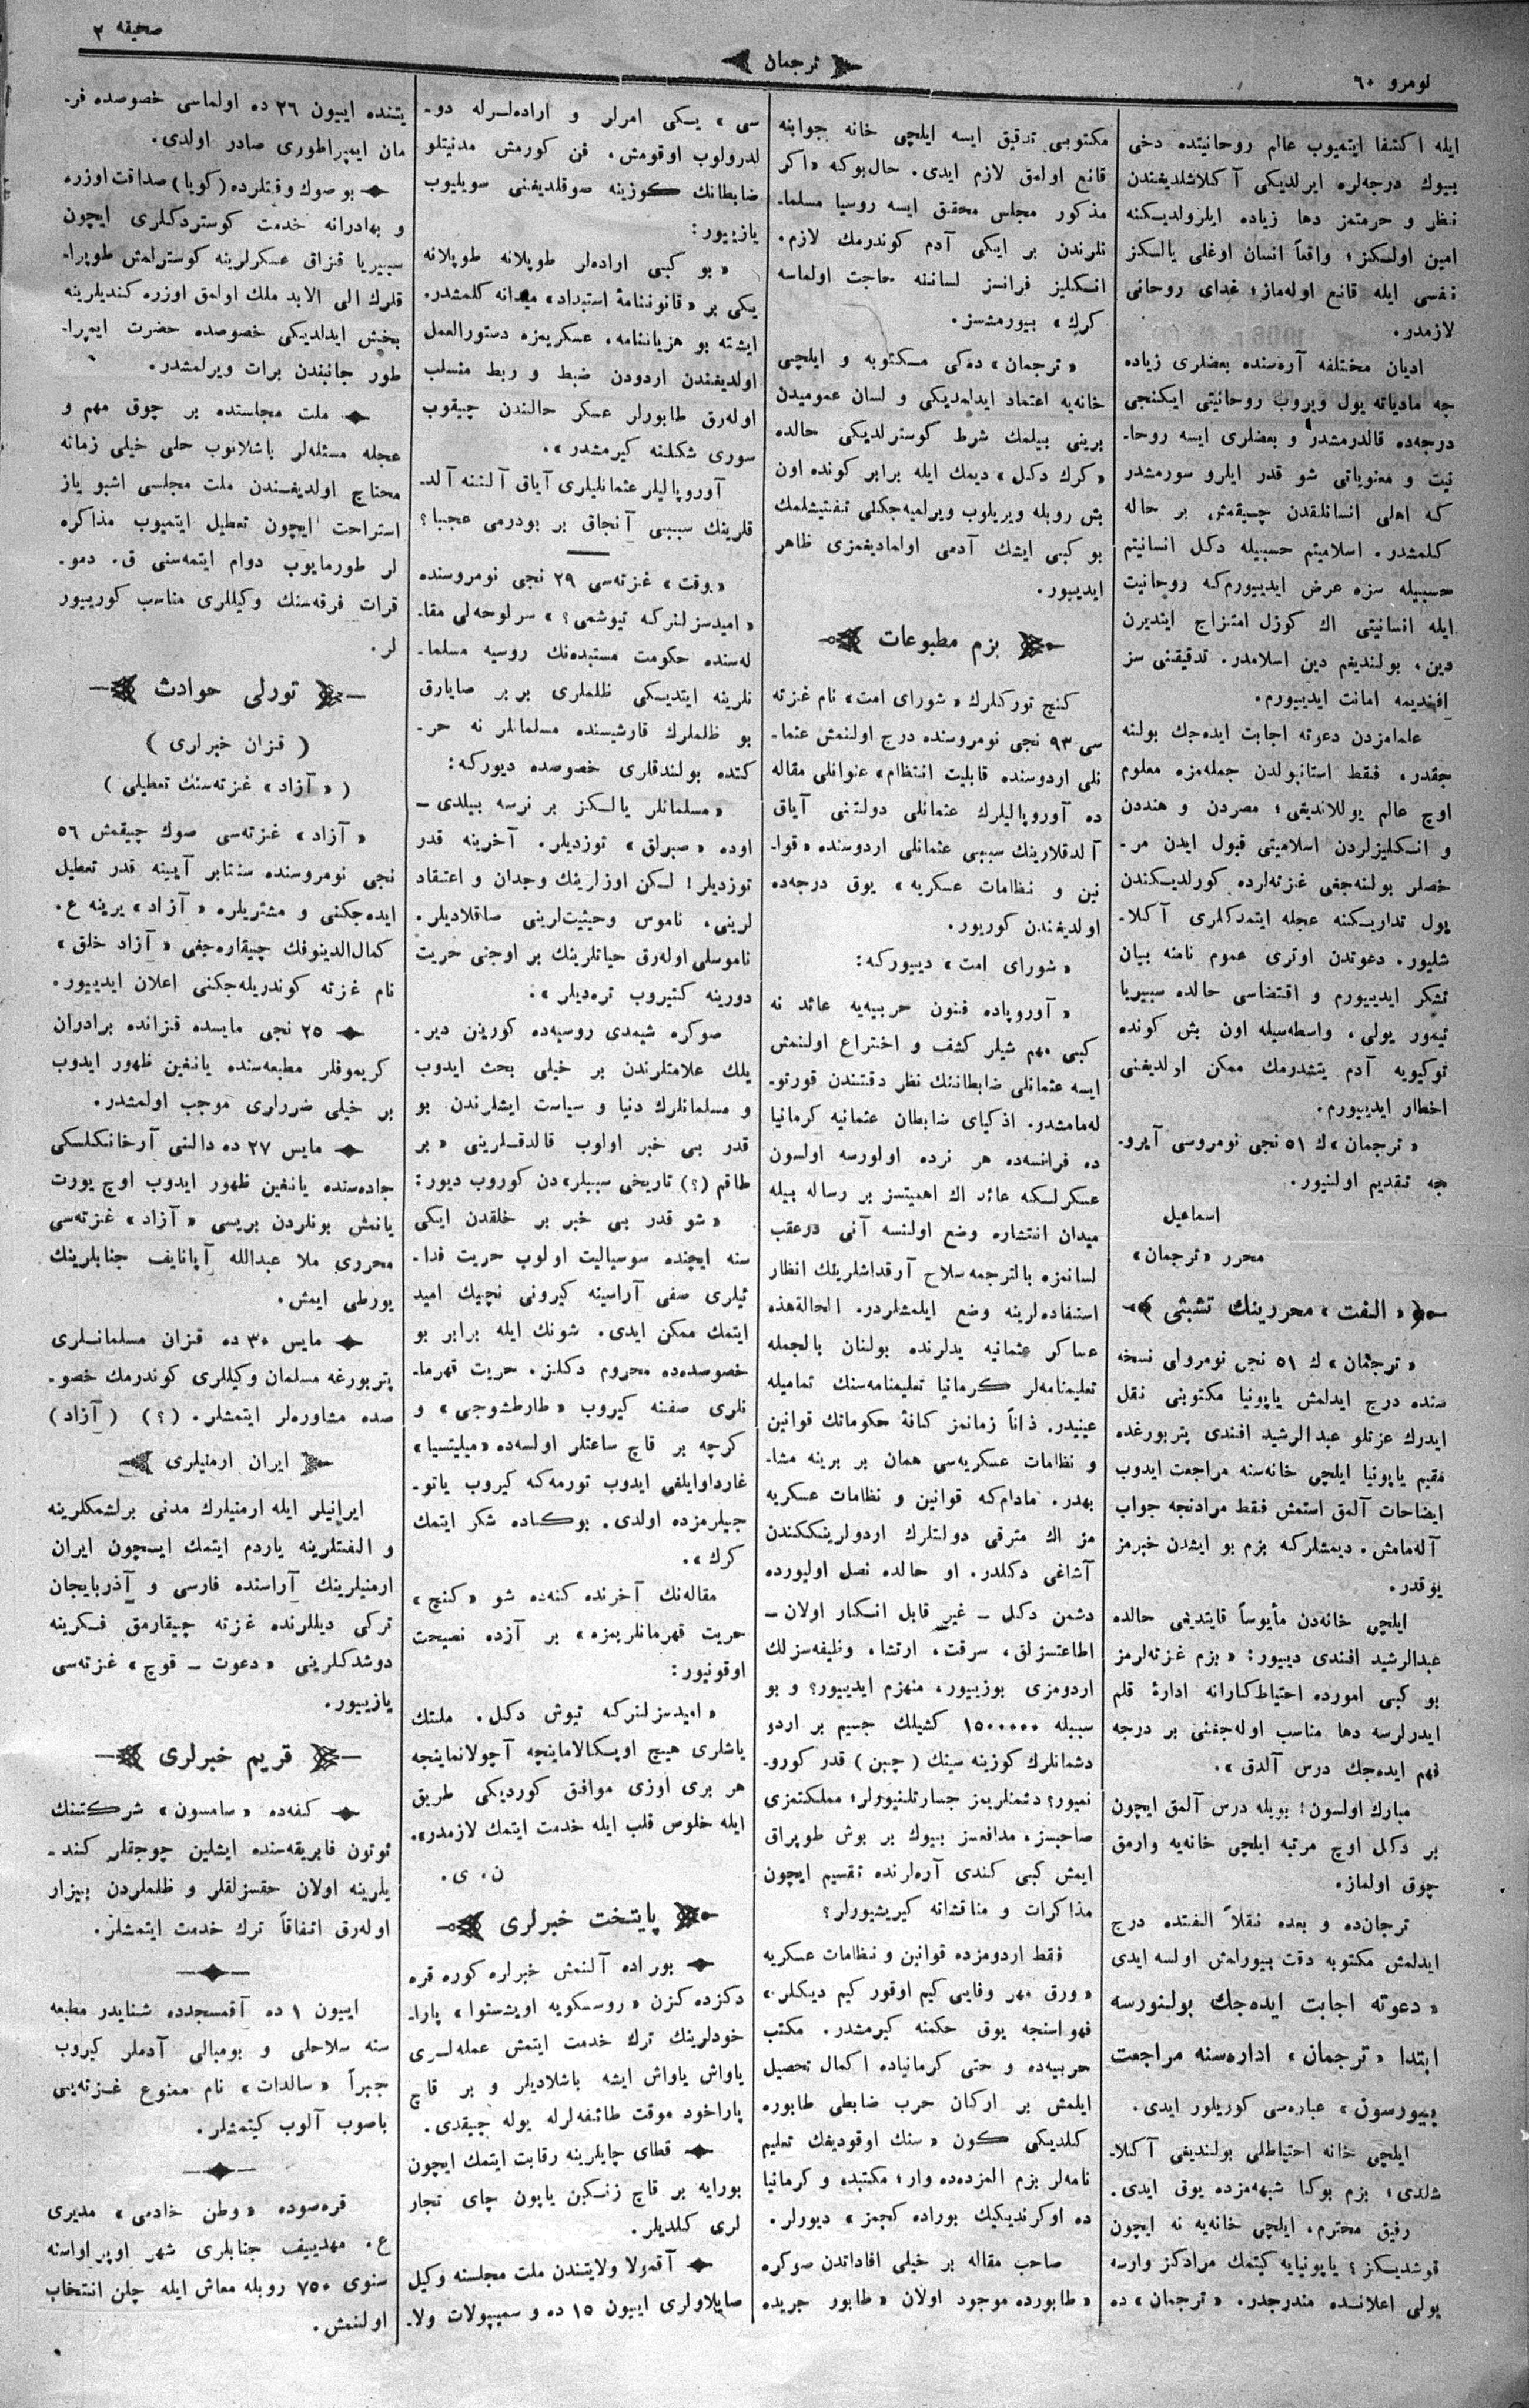 نومرو ٦٠
ترجمان
صحيفه ٢
ايله اكتفا ايتميوب عالم روحانيتده دخى
بيوك درجه‌لره ايرلديكى آكلاشلديغندن
نظر و حرمتمز دها زياده ايلرولديكنه
امين اولسكز؛ واقعاً انسان اوغلى يالكز
نفسى ايله قانع اوله‌ماز؛ غداى روحانى
لازمدر.
اديان مختلفه آره‌سنده بعضلرى زياده
جه مادياته يول ويروب روحانيتى ايكنجى
درجه‌ده قالدرمشدر و بعضلرى ايسه روحا-
نيت و معنوياتى شو قدر ايلرو سورمشدر
كه اهلى انسانلقدن چيقمش بر حاله
كلمشدر. اسلاميتم حسبيله دكل انسانيتم
حسبيله سزه عرض ايدييورم كه روحانيت
ايله انسانيتى اك كوزل امتزاج ايتديرن
دين، بولنديغم دين اسلامدر. تدقيقنى سز
افنديمه امانت ايدييورم.
علمامزدن دعوته اجابت ايده‌جك بولنه
جقدر. فقط استانبولدن جمله‌مزه معلوم
اوچ عالم يوللانديغى؛ مصردن و هنددن
و انكليزلردن اسلاميتى قبول ايدن مر-
خصلر بولنه‌جغى غزته‌لرده كورلديكندن
يول تداريكنه عجله ايتمدكلرى آكلا-
شليور. دعوتدن اوترى عموم نامنه بيان
تشكر ايدييورم و اقتضاسى حالده سيبيريا
تيمور يولى، واسطه‌سيله اون بش كونده
توكيويه آدم يتشدرمك ممكن اولديغنى
اخطار ايدييورم.
« ترجمان »ك ٥١ نجى نومروسى آيرو-
جه تقديم اولنيور.
اسماعيل
محرر «ترجمان»
« الفت » محررينك تشبثى
« ترجمان » ك ٥١ نجى نومرولى نسخه
سنده درج ايدلمش ياپونيا مكتوبنى نقل
ايدرك عزتلو عبدالرشيد افندى پتربورغده
مقيم ياپونيا ايلچى خانه‌سنه مراجعت ايدوب
ايضاحات آلمق استمش فقط مرادنجه جواب
آله‌مامش. ديمشلركه بزم بو ايشدن خبرمز
يوقدر.
ايلچى خانه‌دن مأيوساً قايتديغى حالده
عبدالرشيد افندى دييور: « بزم غزته‌لرمز
بو كبى امورده احتياط‌كارانه ادارۀ قلم
ايدرلرسه دها مناسب اوله‌جغنى بر درجه
فهم ايده‌جك درس آلدق ».
مبارك اولسون! بويله درس آلمق ايچون
بر دكل اوچ مرتبه ايلچى خانه‌يه وارمق
چوق اولماز.
ترجمان‌ده و بعده نقلاً الفتده درج
ايدلمش مكتوبه دقت بيورلمش اولسه ايدى
« دعوته اجابت ايده‌جك بولنورسه
ابتدا « ترجمان » اداره‌سنه مراجعت
بيورسون » عباره‌سى كوريلور ايدى.
ايلچى خانه احتياطلى بولنديغى آكلا-
شلدى؛ بزم بوكا شبهه‌مزده يوق ايدى.
رفيق محترم، ايلچى خانه‌يه نه ايچون
قوشديكز؟ ياپونيايه كيتمك مرادكز وارسه
يولى اعلانده مندرجدر. « ترجمان » ده
مكتوبى تدقيق ايسه ايلچى خانه جوابنه
قانع اولمق لازم ايدى. حال‌بوكه « اكر
مذكور مجلس محقق ايسه روسيا مسلما-
نلرندن بر ايكى آدم كوندرمك لازم.
انكليز فرانسز لساننه حاجت اولماسه
كرك » بيورمشسز.
« ترجمان » ده‌كى مكتوبه و ايلچى
خانه‌يه اعتماد ايدلمديكى و لسان عموميدن
برينى بيلمك شرط كوسترلديكى حالده
« كرك دكل » ديمك ايله برابر كونده اون
بش روبله ويريلوب ويرلميه‌جكنى تفتيشلمك
بو كبى ايشك آدمى اولماديغمزى ظاهر
ايدييور.
بزم مطبوعات
كنج توركلرك « شوراى امت » نام غزته
سى ٩٣ نجى نومروسنده درج اولنمش عثما-
نلى اردوسنده قابليت انتظام » عنوانلى مقاله
ده آوروپاليلرك عثمانلى دولتنى آياق
آلدقلارينك سببى عثمانلى اردوسنده « قوا-
نين و نظامات عسكريه » يوق درجه‌ده
اولديغندن كوريور.
« شوراى امت » دييوركه:
« آوروپاده فنون حربيه‌يه عائد نه
كبى مهم شيلر كشف و اختراع اولنمش
ايسه عثمانلى ضابطاننك نظر دقتندن قورتو-
له‌مامشدر. اذكياى ضابطان عثمانيه كرمانيا
ده فرانسه‌ده هر نرده اولورسه اولسون
عسكرلكه عائد اك اهميتسز بر رساله بيله
ميدان انتشاره وضع اولنسه آنى درعقب
لسانمزه بالترجمه سلاح آرقداشلرينك انظار
استفاده‌لرينه وضع ايلمشلردر. الحالةهذه
عساكر عثمانيه يدلرنده بولنان بالجمله
تعليمنامه‌لر كرمانيا تعليمنامه‌سنك تماميله
عينيدر. ذاتاً زمانمز كافۀ حكوماتك قوانين
و نظامات عسكريه‌سى همان بر برينه مشا-
بهدر. مادام‌كه قوانين و نظامات عسكريه
مز اك مترقى دولتلرك اردولرينككندن
آشاغى دكلدر. او حالده نصل اوليورده
دشمن دكل - غير قابل انكار اولان -
اطاعتسزلق، سرقت، ارتشا، وظيفه‌سزلك
اردومزى بوزييور، منهزم ايدييور؟ و بو
سببله ١٥٠٠٠٠٠ كشيلك جسيم بر اردو
دشمانلرك كوزينه سينك ( چبن ) قدر كورو-
نميور؟ دشمنلريمز جسارتلنيورلر؛ مملكتمزى
صاحبسز، مدافعسز بيوك بر بوش طوپراق
ايمش كبى كندى آره‌لرنده تقسيم ايچون
مذاكرات و مناقشاته كيريشيورلر؟
فقط اردومزده قوانين و نظامات عسكريه
« ورق مهر وفايى كيم اوقور كيم ديكلر »
فهواسنجه يوق حكمنه كيرمشدر. مكتب
حربيه‌ده و حتى كرمانياده اكمال تحصيل
ايلمش بر اركان حرب ضابطى طابوره
كلديكى كون « سنك اوقوديغك تعليم
نامه‌لر بزم المزده‌ده وار؛ مكتبده و كرمانيا
ده اوكرنديكيك بوراده كچمز » ديورلر.
صاحب مقاله بر خيلى افاداتدن صوكره
« طابورده موجود اولان « طابور جريده
سى » يسكى امرلر و اراده‌لرله دو-
لدرولوب اوقومش، فن كورمش مدنيتلو
ضابطانك كوزينه صوقلديغنى سويليوب
يازييور:
« بو كبى اراده‌لر طوپلانه طوپلانه
يكى بر « قانوننامۀ استبداد » ميدانه كلمشدر.
ايشته بو هزياننامه، عسكريمزه دستورالعمل
اولديغندن اردودن ضبط و ربط منسلب
اوله‌رق طابورلر عسكر حالندن چيقوب
سورى شكلنه كيرمشدر ».
آوروپاليلر عثمانليلرى آياق آلتنه آلد-
قلرينك سببى آنجاق بر بودرمى عجبا؟
« وقت » غزته‌سى ٢٩ نجى نومروسنده
« اميدسزلنركه تيوشمى؟ » سرلوحه‌لى مقا-
له‌سنده حكومت مستبده‌نك روسيه مسلما-
نلرينه ايتديكى ظلملرى بربر صايارق
بو ظلملرك قارشيسنده مسلمانلر نه حر-
كتده بولندقلرى خصوصده ديوركه:
« مسلمانلر يالكز بر نرسه بيلدى-
اوده « صبرلق » توزديلر. آخرينه قدر
توزديلر! لكن اوزلرينك وجدان و اعتقاد
لرينى، ناموس وحيثيت‌لرينى صاقلاديلر.
ناموسلى اوله‌رق حياتلرينك بر اوجنى حريت
دورينه كتيروب تره‌ديلر ».
صوكره شيمدى روسيه‌ده كورينن دير-
يلك علامتلرندن بر خيلى بحث ايدوب
و مسلمانلرك دنيا و سياست ايشلرندن بو
قدر بى خبر اولوب قالدقلرينى « بر
طاقم (؟) تاريخى سببلر » دن كوروب ديور:
« شو قدر بى خبر بر خلقدن ايكى
سنه ايچنده سوسياليت اولوب حريت فدا-
ئيلرى صفى آراسينه كيرونى نچيك اميد
ايتمك ممكن ايدى. شونك ايله برابر بو
خصوصده‌ده محروم دكلز. حريت قهرما-
نلرى صفنه كيروب « طارطشوجى » و
كرچه بر قاچ ساعتلر اولسه‌ده « ميليتسيا »
غارداوايلغى ايدوب تورمه‌كه كيروب ياتو-
جيلرمزده اولدى. بوكاده شكر ايتمك
كرك ».
مقاله‌نك آخرنده كنه‌ده شو « كنج »
حريت قهرمانلريمزه » بر آزده نصيحت
اوقونيور:
« اميدسزلنركه تيوش دكل. ملتك
ياشلرى هيچ اوپكالاماينچه آچولانماينچه
هر برى اوزى موافق كورديكى طريق
ايله خلوص قلب ايله خدمت ايتمك لازمدر».
ن. ى.
پايتخت خبرلرى
بوراده آلنمش خبرلره كوره قره
دكزده كزن « روسسكويه اويشستوا » پارا-
خودلرينك ترك خدمت ايتمش عمله‌لرى
ياواش ياواش ايشه باشلاديلر و بر قاچ
پاراخود موقت طائفه‌لرله يوله چيقدى.
قطاى چايلرينه رقابت ايتمك ايچون
بورايه بر قاچ زنكين ياپون چاى تجار
لرى كلديلر.
آقمولا ولايتندن ملت مجلسنه وكيل
صايلاولرى ايييون ١٥ ده و سميپولات ولا-
يتنده ايييون ٢٦ ده اولماسى خصوصده فر-
مان ايمپراطورى صادر اولدى.
بو صوك وقتلرده (كويا) صداقت اوزره
و بهادرانه خدمت كوستردكلرى ايچون
سيبيريا قزاق عسكرلرينه كوسترلمش طوپرا-
قلرك الى الابد ملك اولمق اوزره كنديلرينه
بخش ايدلديكى خصوصده حضرت ايمپرا-
طور جانبندن برات ويرلمشدر.
ملت مجلسنده بر چوق مهم و
عجله مسئله‌لر باشلانوب حلى خيلى زمانه
محتاج اولديغندن ملت مجلسى اشبو ياز
استراحت ايچون تعطيل ايتميوب مذاكره
لر طورمايوب دوام ايتمه‌سنى ق. دمو-
قرات فرقه‌سنك وكيللرى مناسب كورييور
لر.
تورلى حوادث
( قزان خبرلرى )
( « آزاد » غزته‌سنك تعطيلى )
« آزاد » غزته‌سى صوك چيقمش ٥٦
نجى نومروسنده سنتابر آيينه قدر تعطيل
ايده‌جكنى و مشتريلره « آزاد » يرينه ع.
كمال‌الدينوفك چيقاره‌جغى « آزاد خلق »
نام غزته كوندريله‌جكنى اعلان ايدييور.
٢٥ نجى مايسده قزانده برادران
كريموفلر مطبعه‌سنده يانغين ظهور ايدوب
بر خيلى ضررارى موجب اولمشدر.
مايس ٢٧ ده دالنى آرخانكلسكى
جاده‌سنده يانغين ظهور ايدوب اوچ يورت
يانمش بونلردن بريسى « آزاد » غزته‌سى
محررى ملا عبدالله آپانايف جنابلرينك
يورطى ايمش.
مايس ٣٠ ده قزان مسلمانلرى
پتربورغه مسلمان وكيللرى كوندرمك خصو-
صده مشاوره‌لر ايتمشلر. (؟) ( آزاد )
ايران ارمنيلرى
ايرانيلر ايله ارمنيلرك مدنى برلشمكلرينه
و الفتلرينه ياردم ايتمك ايچون ايران
ارمنيلرينك آراسنده فارسى و آذربايجان
تركى ديللرنده غزته چيقارمق فكرينه
دوشدكلرينى « دعوت - قوچ » غزته‌سى
يازييور.
قريم خبرلرى
كفه‌ده « سامسون » شركتنك
توتون فابريقه‌سنده ايشلين چوجقلر كند-
يلرينه اولان حقسزلقلر و ظلملردن بيزار
اوله‌رق اتفاقاً ترك خدمت ايتمشلر.
ايييون ١ ده آقمسجدده شنايدر مطبعه
سنه سلاحلى و بومبالى آدملر كيروب
جبراً « سالدات » نام ممنوع غزته‌يى
باصوب آلوب كيتمشلر.
قره‌صوده « وطن خادمى » مديرى
ع. مهدييف جنابلرى شهر اوپراواسنه
سنوى ٧٥٠ روبله معاش ايله چلن انتخاب
اولنمش.